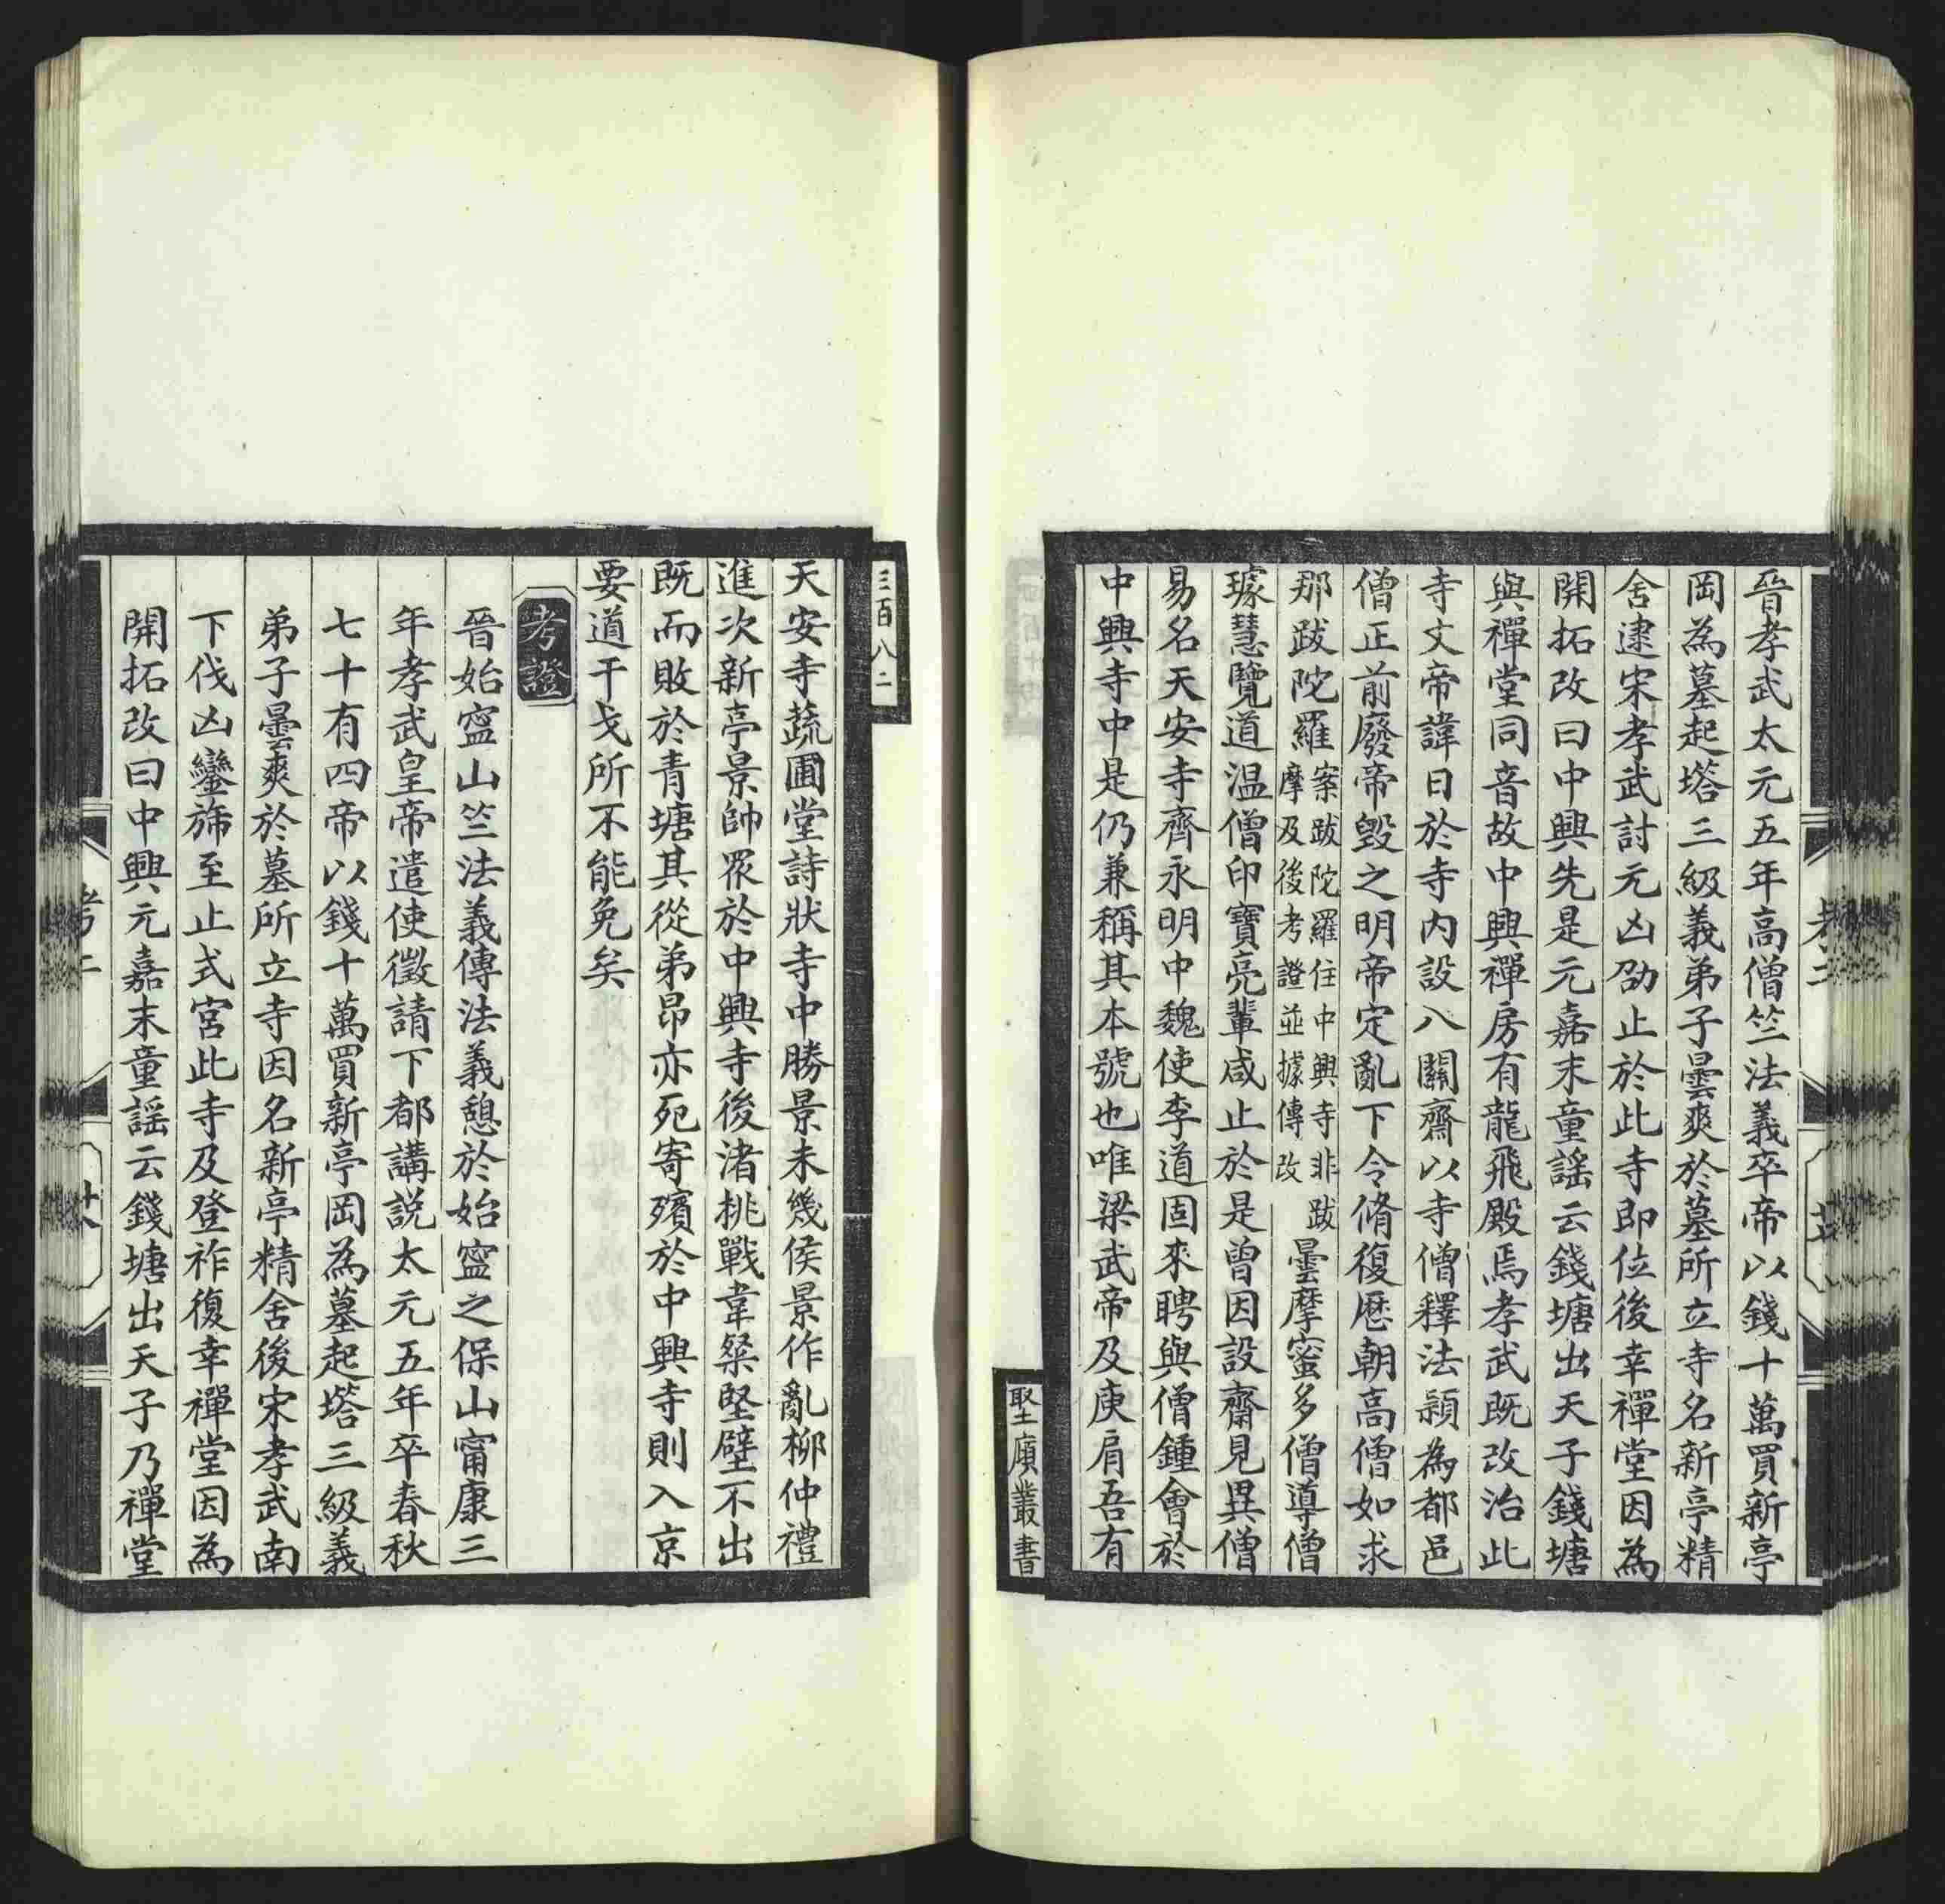 晉孝武太元五年高僧竺法義卒帝以錢十萬買新亭
岡為墓起塔三級義弟子曇爽於墓所立寺名新亭精
舍逮宋孝武討元凶劭止於此寺即位後幸禪堂因為
開拓改曰中興先是元嘉末童謠云錢塘出天子錢塘
與禪堂同音故中興禪房有龍飛殿焉孝武既改治此
寺文帝諱日於寺內設八關齋以寺僧釋法穎為都邑
僧正前廢帝毀之明帝定亂下令脩復歷朝高僧如求
那跋陀羅案跋陀羅住中興寺非跋
摩及後考證並據傳改曇摩蜜多僧導僧
璩慧覽道溫僧印寶亮輩咸止於是曾因設齋見異僧
易名天安寺齊永明中魏使李道固來聘與僧鍾會於
中興寺中是仍兼稱其本號也唯梁武帝及庾肩吾有
堅廎叢書
三百八二
天安寺蔬圃堂詩狀寺中勝景未幾侯景作亂柳仲禮
進次新亭景帥眾於中興寺後渚挑戰韋粲堅壁不出
既而敗於青塘其從弟昂亦死寄殯於中興寺則入京
要道干戈所不能免矣
考證
晉始寍山竺法義傳法義憩於始寍之保山甯康三
年孝武皇帝遣使徵請下都講說太元五年卒春秋
七十有四帝以錢十萬買新亭岡為墓起塔三級義
弟子曇爽於墓所立寺因名新亭精舍後宋孝武南
下伐凶鑾斾至止式宮此寺及登祚復幸禪堂因為
開拓改曰中興元嘉末童謠云錢塘出天子乃禪堂